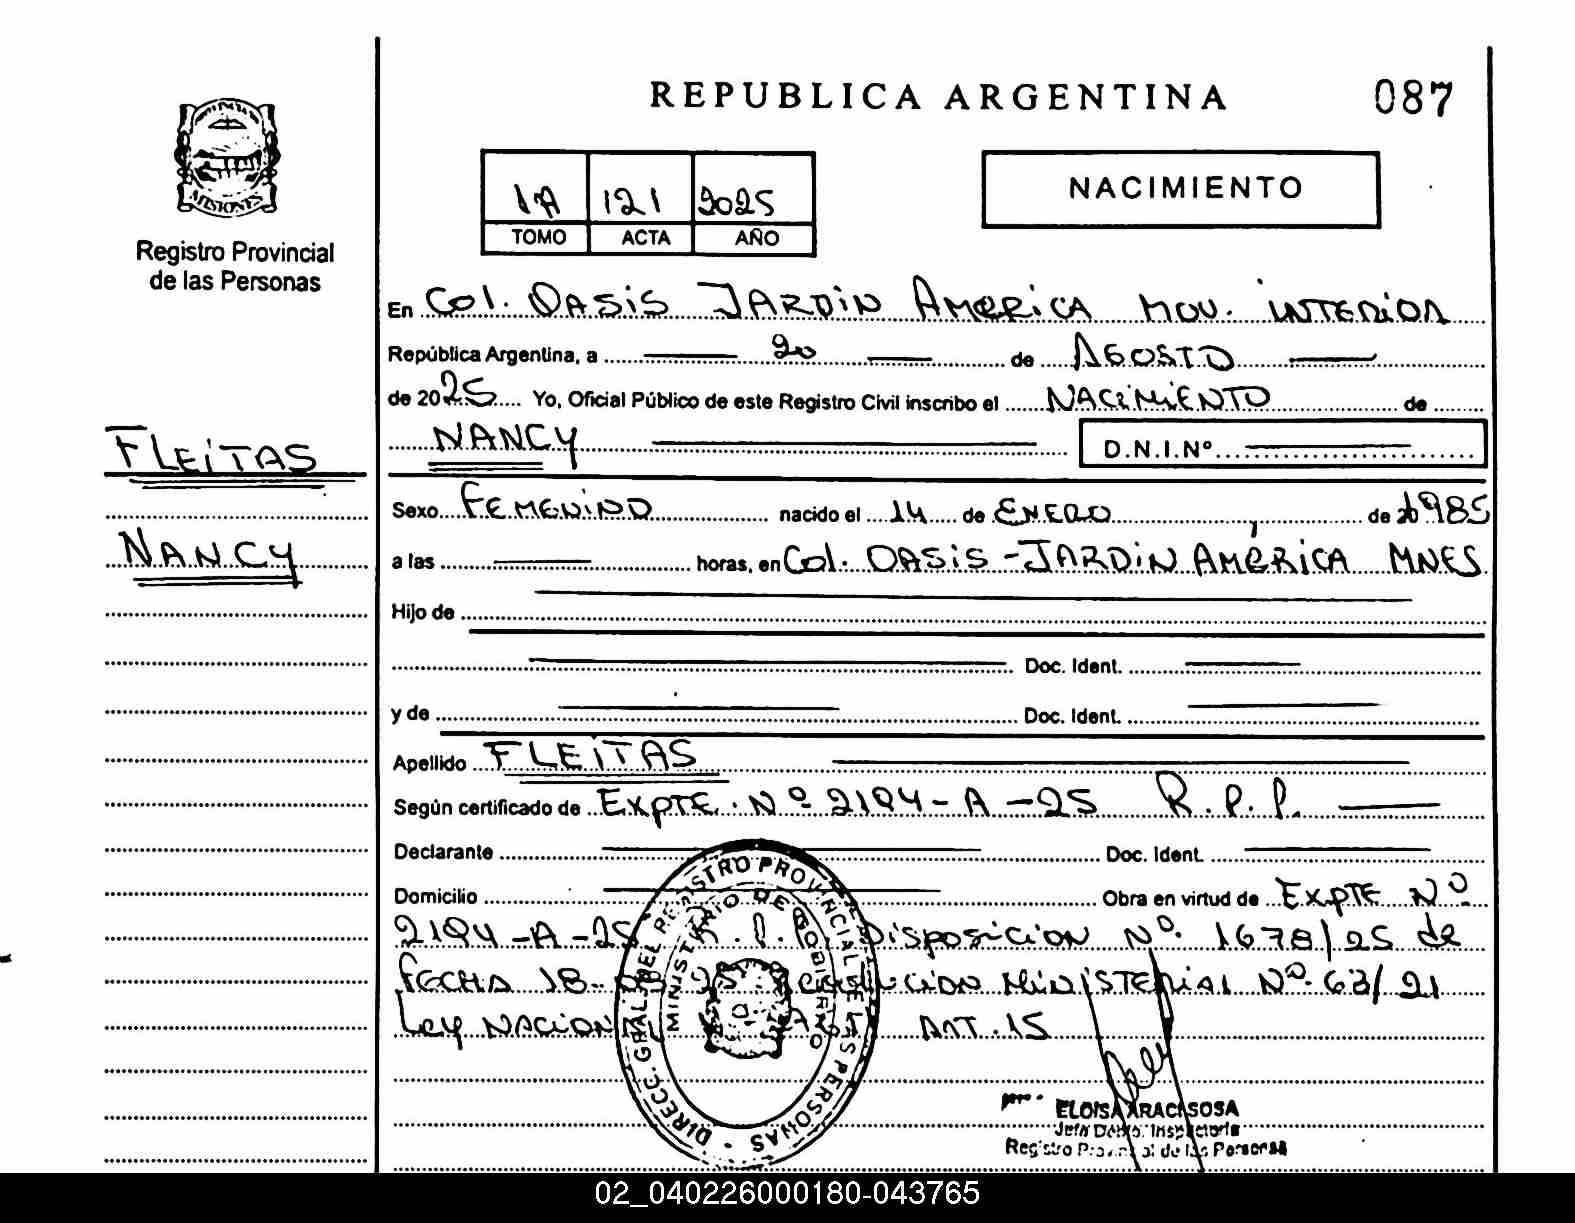 REPUBLICA ARGENTINA
087
MISIONES
Registro Provincial
de las Personas
1A 121 2025
TOMO ACTA AÑO
NACIMIENTO
En Col. OASiS JARDiN AMERiCA MOV. iNTERiOR
República Argentina, a 20 de AGOSTO
de 2025 Yo, Oficial Público de este Registro Civil inscribo el NACiMiENTO de
NANCY D.N.I.Nº
FLEiTAS
NANCY
Sexo FEMENiNO nacido el 14 de ENERO de 1985
a las horas, en Col. OASiS - JARDiN AMERiCA MNES
Hijo de
Doc. Ident.
y de Doc. Ident.
Apellido FLEiTAS
Según certificado de EXPTE. Nº 2194-A-25 R.P.P.
Declarante Doc. Ident.
Domicilio Obra en virtud de EXPTE Nº
2194-A-25 R.P.P. DiSPOSiCiON Nº. 1678/25 de
FECHA 18- MiNiSTERiAL Nº. 63/21
Ley NACiONAL ART. 15
DIRECC. GRAL. DEL REGISTRO PROVINCIAL DE LAS PERSONAS
MINISTERIO DE GOBIERNO
ELOISA ARACI SOSA
Jefa Dpto. Inspectoria
Registro Provincial de las Personas
02_040226000180-043765